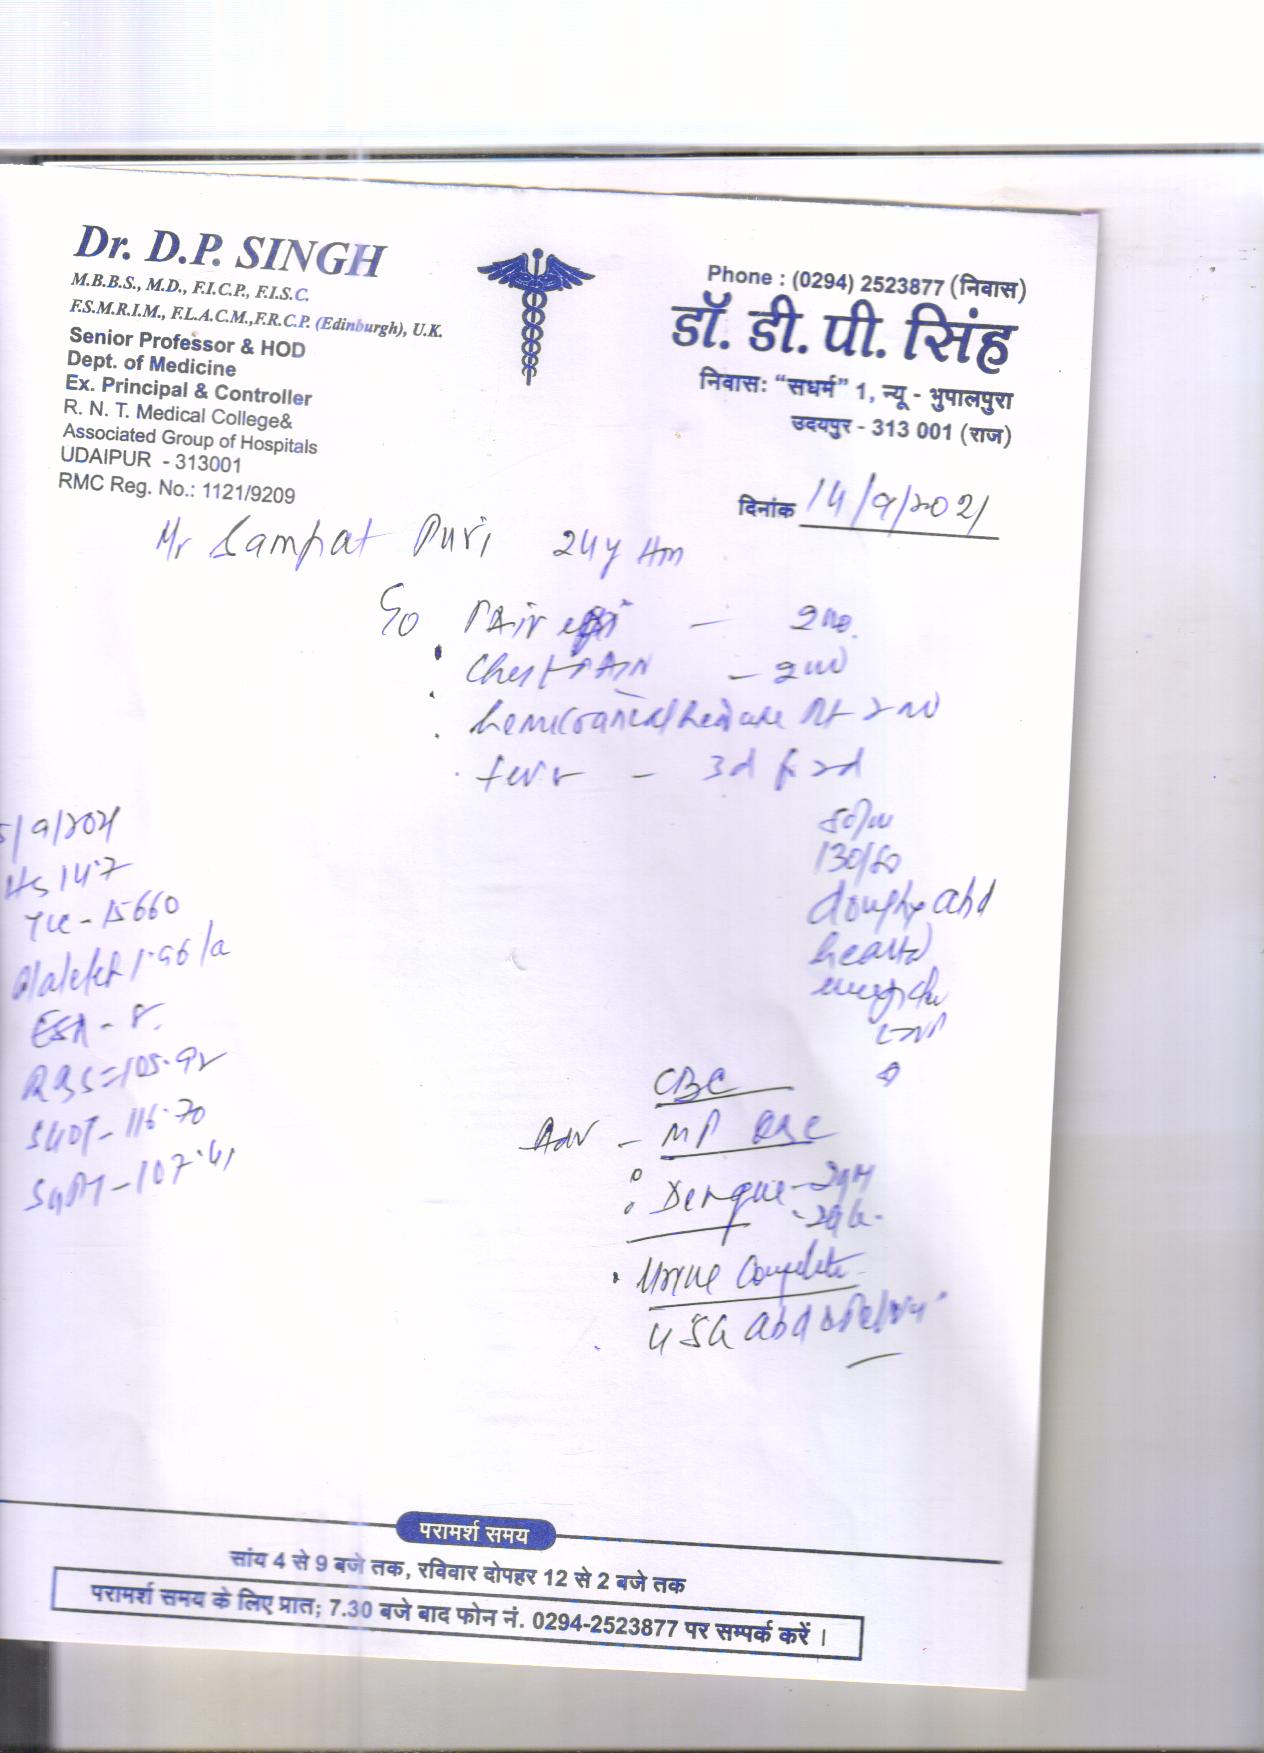 Dr. D.P. SINGH
M.B.B.S., M.D., F.I.C.P., F.I.S.C.
F.S.M.R.I.M., F.L.A.C.M.,F.R.C.P. (Edinburgh), U.K.
Senior Professor & HOD
Dept. of Medicine
Ex. Principal & Controller
R. N. T. Medical College&
Associated Group of Hospitals
UDAIPUR - 313001
RMC Reg. No.: 1121/9209
Phone : (0294) 2523877 (निवास)
डॉ. डी. पी. सिंह
निवास: “सधर्म” 1, न्यू - भुपालपुरा
उदयपुर - 313 001 (राज)
दिनांक 14/9/2021
Mr Sampat Puri 24y Hm
PAin epi -
Chest PAIN -
hemicranial headache Rt
fever - 3d
130/80
doughy abd
/9/2021
14.7
TLC - 15660
Platelet 1.96/a
ESR - 8.
RBS = 105.92
SGOT - 116.70
SGPT - 107.41
CBC
Adv - MP QBC
Dengue - IgM
- IgG.
Urine Complete
USG abd & Pelvis
परामर्श समय
सांय 4 से 9 बजे तक, रविवार दोपहर 12 से 2 बजे तक
परामर्श समय के लिए प्रात; 7.30 बजे बाद फोन नं. 0294-2523877 पर सम्पर्क करें ।